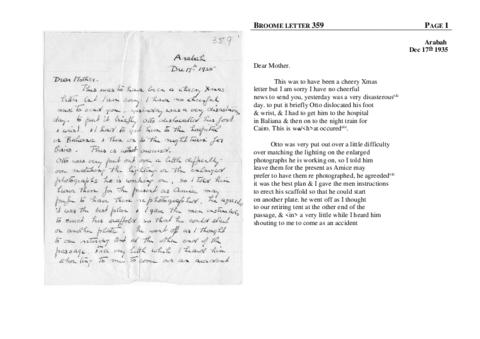 359
Arabah
Dec 17th 1935
Dear Mother.
This was to have been a cheery Xmas
letter but I am sorry I have no cheerful
news to send you, yesterday was a very disasterous
day. to put it briefly Otto dislocated his foot
& wrist, & I had to get him to the hospital
in Baliana & then on to the night train for
Cairo. This is what occured.
Otto was very put out over a little difficulty
over matching the lighting on the enlarged
photographs he is working on, so I told him
leave them for the present as Amice may
prefer to have them rephotographed, he agreeded
it was the best plan & I gave the men instructions
to erect his scaffold so that he could start
on another plate. he went off as I thought
to our retiring tent at the other end of the
passage, & in a very little while I heard him
shouting to me to come as an accident
BROOME LETTER 359 PAGE 1
Arabah
Dec 17th 1935
Dear Mother.
This was to have been a cheery Xmas
letter but I am sorry I have no cheerful
news to send you, yesterday was a very disasterous<sic>
day. to put it briefly Otto dislocated his foot
& wrist, & I had to get him to the hospital
in Baliana & then on to the night train for
Cairo. This is wa/<h>at occured<sic>.
Otto was very put out over a little difficulty
over matching the lighting on the enlarged
photographs he is working on, so I told him
leave them for the present as Amice may
prefer to have them rephotographed, he agreeded<sic>
it was the best plan & I gave the men instructions
to erect his scaffold so that he could start
on another plate. he went off as I thought
to our retiring tent at the other end of the
passage, & <in> a very little while I heard him
shouting to me to come as an accident